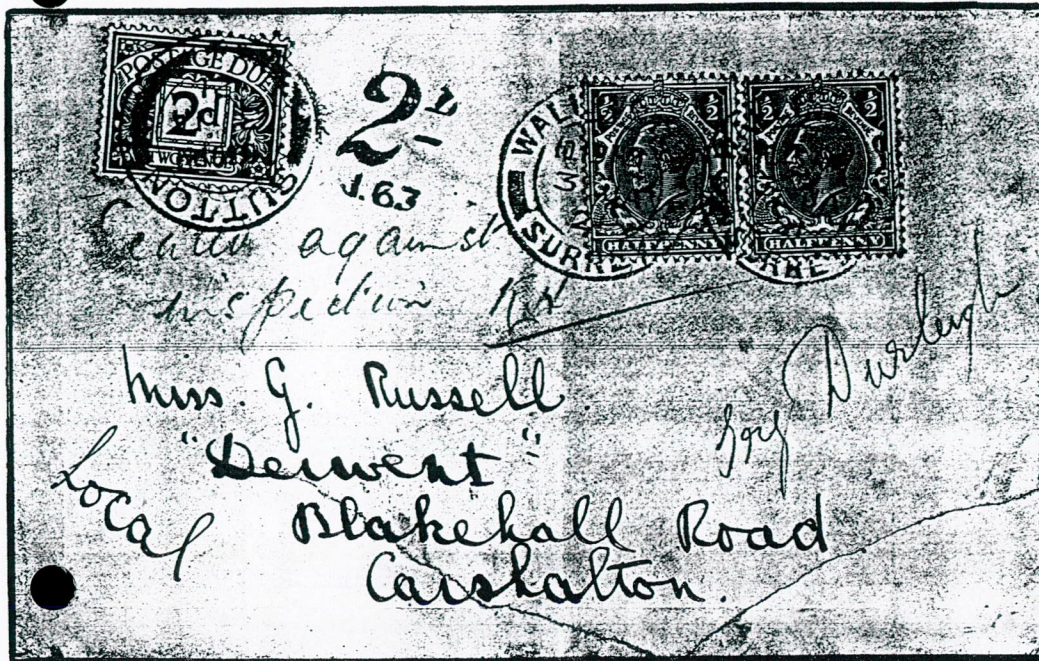 POSTAGE DUE
2d
TWO PENCE
SUTTON
2d
J.63
WALL
SURRE
½ ½
HALFPENNY
½ ½
HALFPENNY
RRE
against
inspection
Miss. G. Russell.
"Derwent"
Blakehall Road
Carshalton.
Local
Durleigh